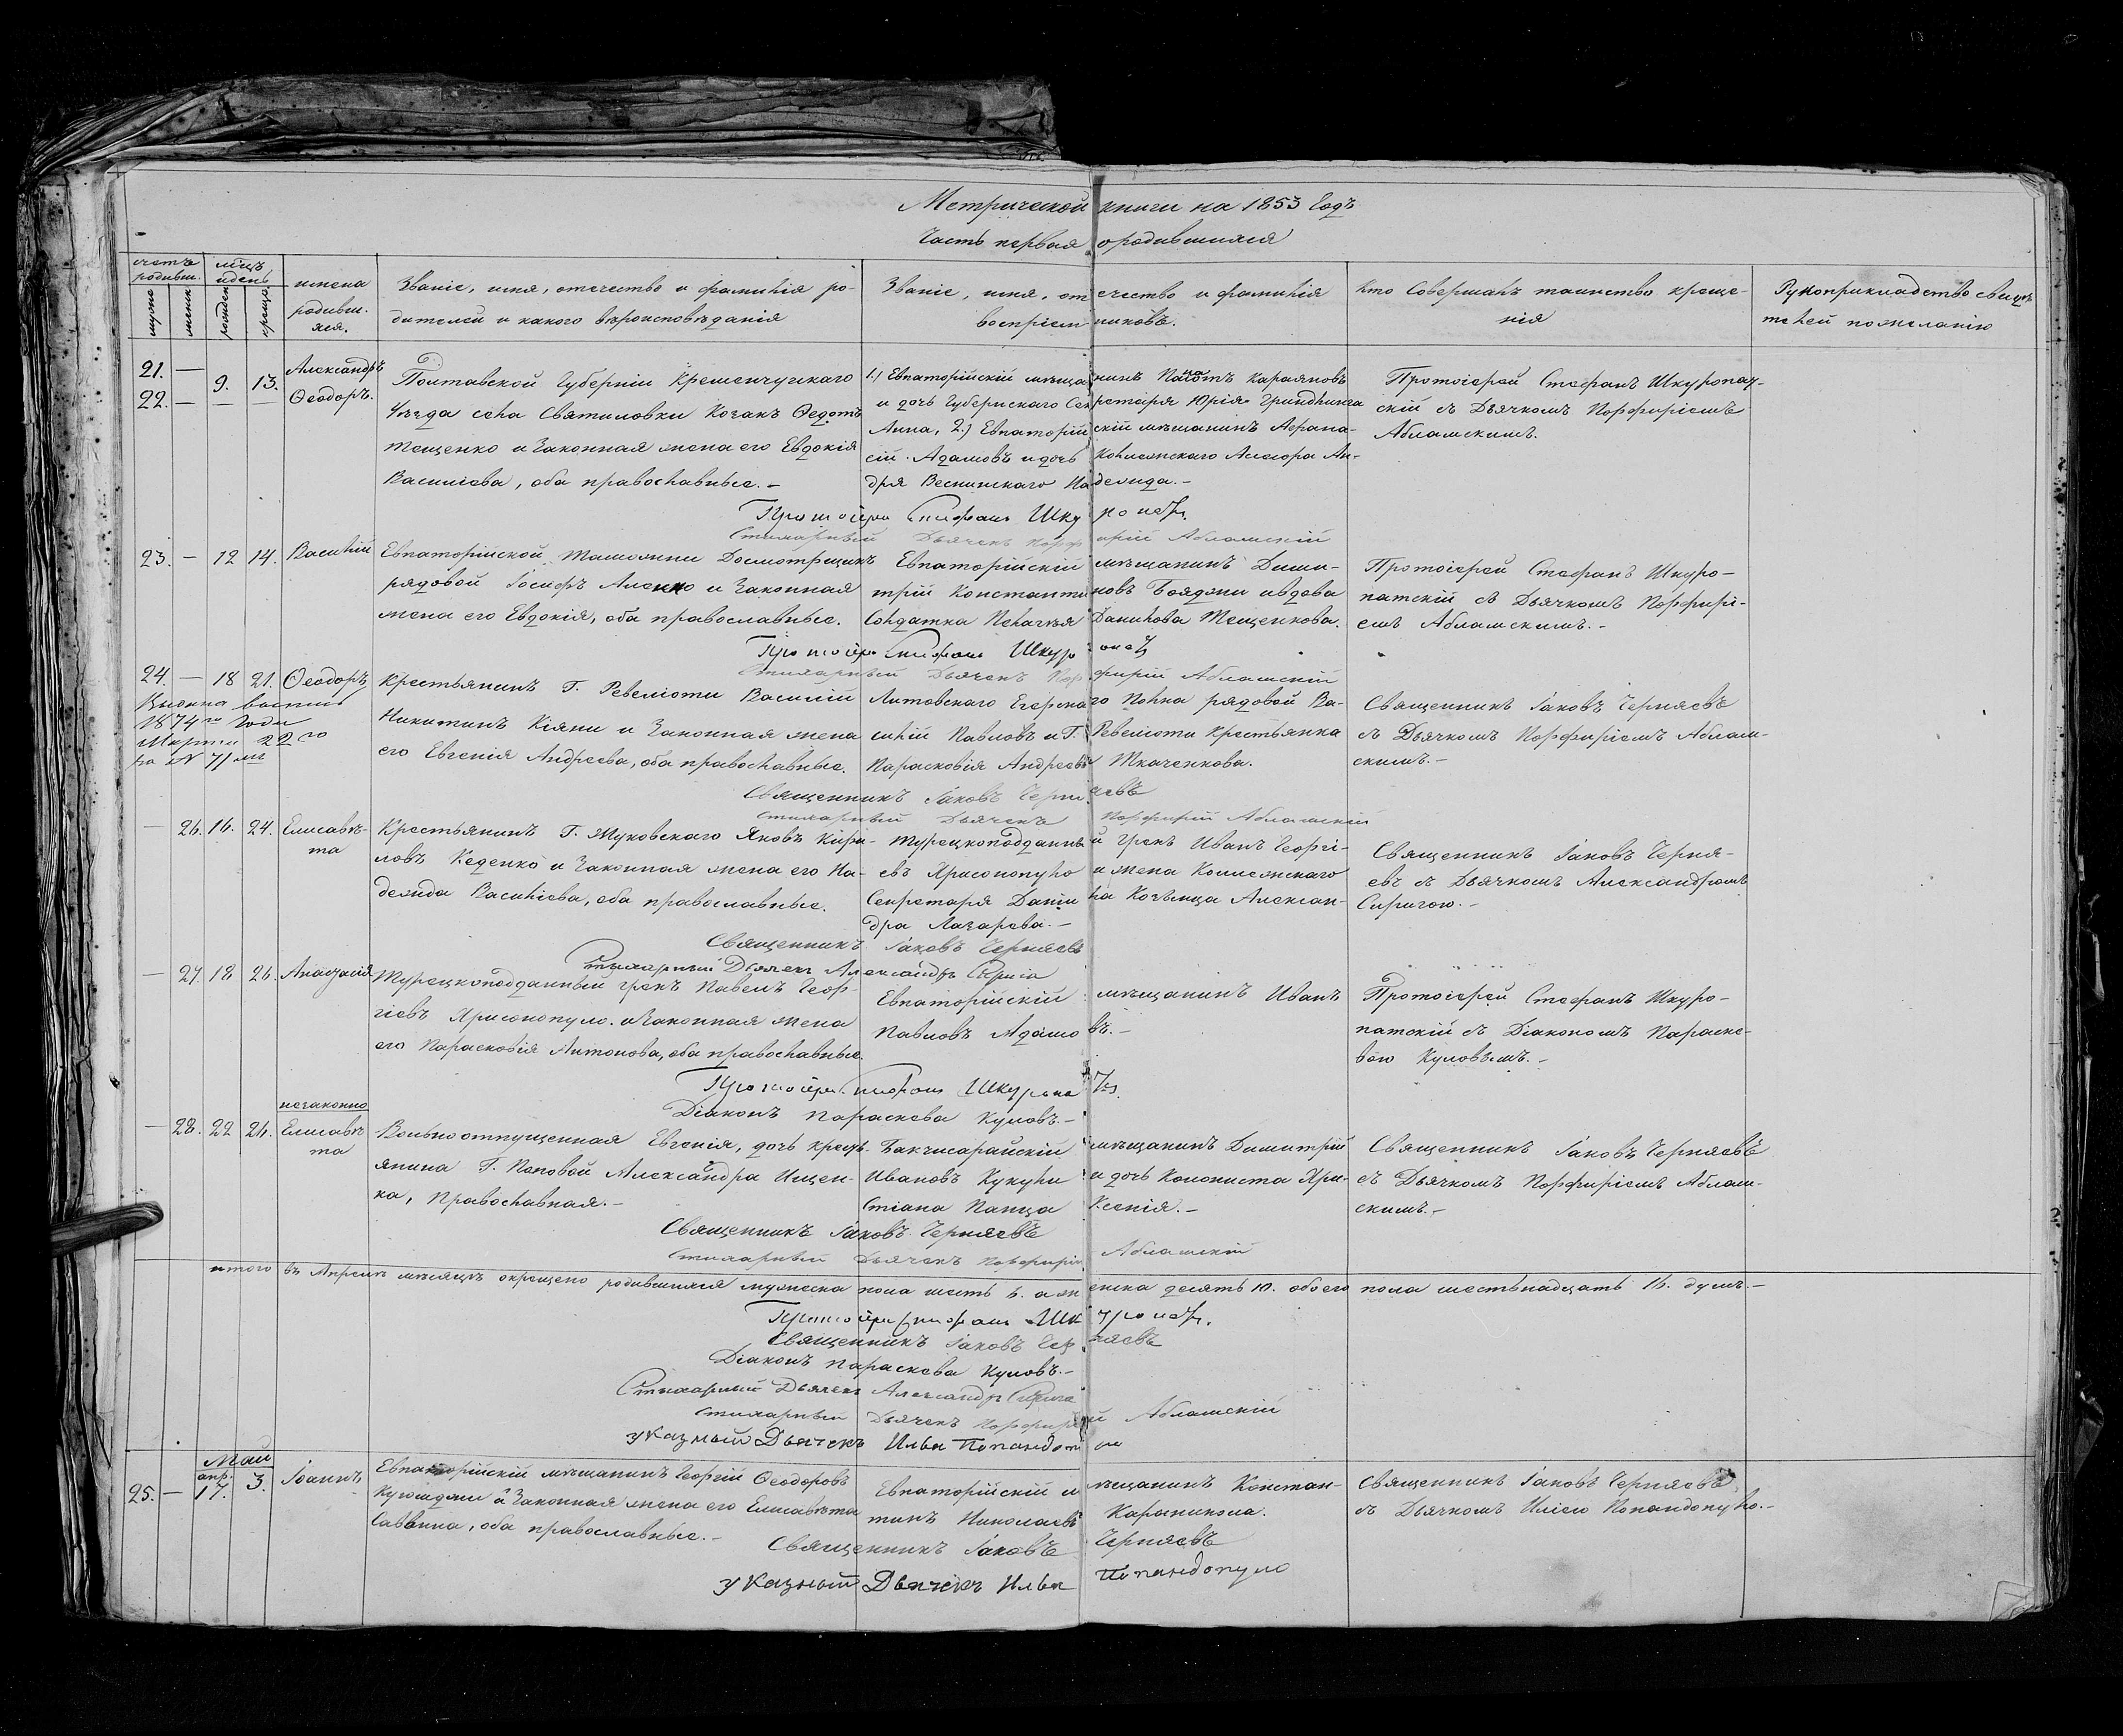 Метрической книги на 1853 Годъ
Часть первая о родившихся
счетъ родивш.
мѣцъ и день
имена родивш.
муже
женск
рожден
крещ
Званіе, имя, отечество и фамилія родителей и какого вѣроисповѣданія
Званіе, имя, отечество и фамилія воспріемниковъ.
Кто Совершалъ таинство крещенія
Рукоприкладство свидѣтелей по желанію
21. — 9. 13. Александръ
22. — — — Ѳеодоръ.
Полтавской Губерніи Кременчугскаго
Уѣзда села Святиловки Козакъ Ѳедотъ
Тещенко и Законная жена его Евдокія
Василіева, оба православные. —
1.) Евпаторійскій мѣщанинъ Караяновъ
и дочь Губернскаго Секретаря Юрія
Анна, 2.) Евпаторійскій мѣщанинъ Афана-
сій Адамовъ и дочь Коллежскаго Ассесора Ан-
дрея Веснинскаго Надежда. —
Протоіерей Стефанъ Шкуропат-
скій съ Дьячкомъ Порфиріемъ
Абламскимъ.
Протоіерей Стефанъ Шкуропат.
Стихарный Дьячекъ Порфирій Абламскій
23. — 12 14. Василій
Евпаторійской Таможни Досмотрщикъ
рядовой Іосифъ и Законная
жена его Евдокія, оба православные.
Евпаторійскій мѣщанинъ Дими-
трій Константиновъ Бояджи и вдова
Солдатка Пелагѣя Данилова Тещенкова.
Протоіерей Стефанъ Шкуро-
патскій съ Дьячкомъ Порфирі-
емъ Абламскимъ. —
Протоіерей Стефанъ Шкуропат
Стихарный Дьячекъ Порфирій Абламскій
24. — 18 21. Ѳеодоръ
1874го Года
Марта 22го
за N 71мъ
Крестьянинъ Г. Ревеліоти Василій
Никитинъ Кіяни и Законная жена
его Евгенія Андреева, оба православные.
Литовскаго Егерскаго Полка рядовой Ва-
силій Павловъ и Г. Ревеліоти Крестьянка
Парасковія Андреева Ткаченкова.
Священникъ Іаковъ Черняевъ
съ Дьячкомъ Порфиріемъ Аблам-
скимъ. —
Священникъ Іаковъ Черняевъ
Стихарный Дьячекъ Порфирій Абламскій
— 26. 16. 24. Елисаве-
та
Крестьянинъ Г. Муковскаго Яковъ Кири-
ловъ Кеденко и Законная жена его На-
дежда Василіева, оба православные.
Турецкоподданный Грекъ Иванъ Георгі-
евъ Хрисонопуло и жена Коллежскаго
Секретаря Даніила Алексан-
дра Лазарева. —
Священникъ Іаковъ Черня-
евъ съ Дьячкомъ Александромъ
Сиригою. —
Священникъ Іаковъ Черняевъ
Стихарный Дьячекъ Александръ Сирига
— 27. 18 26. Анастасія
Турецкоподданный грекъ Павелъ Геор-
гіевъ Хрисонопуло и Законная жена
его Парасковія Антонова, оба православные.
Евпаторійскій мѣщанинъ Иванъ
Павловъ Адамовъ. —
Протоіерей Стефанъ Шкуро-
патскій съ Діакономъ Параске-
вою Куловымъ. —
Протоіерей Стефанъ Шкуропат.
Діаконъ Параскева Куловъ. —
незаконно
— 28. 22 26. Елисаве
та
Вольноотпущенная Евгенія, дочь крест-
янина Г. Поповой Александра Ищен-
ка, Православная. —
Бакчисарайскій мѣщанинъ Димитрій
Ивановъ Кукули и дочь Колониста Хри-
стіана Панца Ксенія. —
Священникъ Іаковъ Черняевъ
съ Дьячкомъ Порфиріемъ Аблам-
скимъ. —
Священникъ Іаковъ Черняевъ
Стихарный Дьячекъ Порфирій Абламскій
итого въ Апрелѣ мѣсяцѣ окрещено родившихся мужеска пола шесть 6. а женска десять 10. обоего пола шестьнадцать 16. душъ. —
Протоіерей Стефанъ Шкуропат.
Священникъ Іаковъ Черняевъ
Діаконъ Параскева Куловъ. —
Стихарный Дьячекъ Александръ Сирига
Стихарный Дьячекъ Порфирій Абламскій
Указный Дьячекъ Илья Попандопуло
Май
25. — апр. 17. 3. Іоаннъ
Евпаторійскій мѣщанинъ Георгій Ѳеодоровъ
Куюмджи и Законная жена его Елисавета
Саввина, оба православные. —
Евпаторійскій мѣщанинъ Констан-
тинъ Николаевъ
Священникъ Іаковъ Черняевъ
съ Дьячкомъ Иліею Попандопуло. —
Священникъ Іаковъ Черняевъ
Указный Дьячекъ Илья Попандопуло